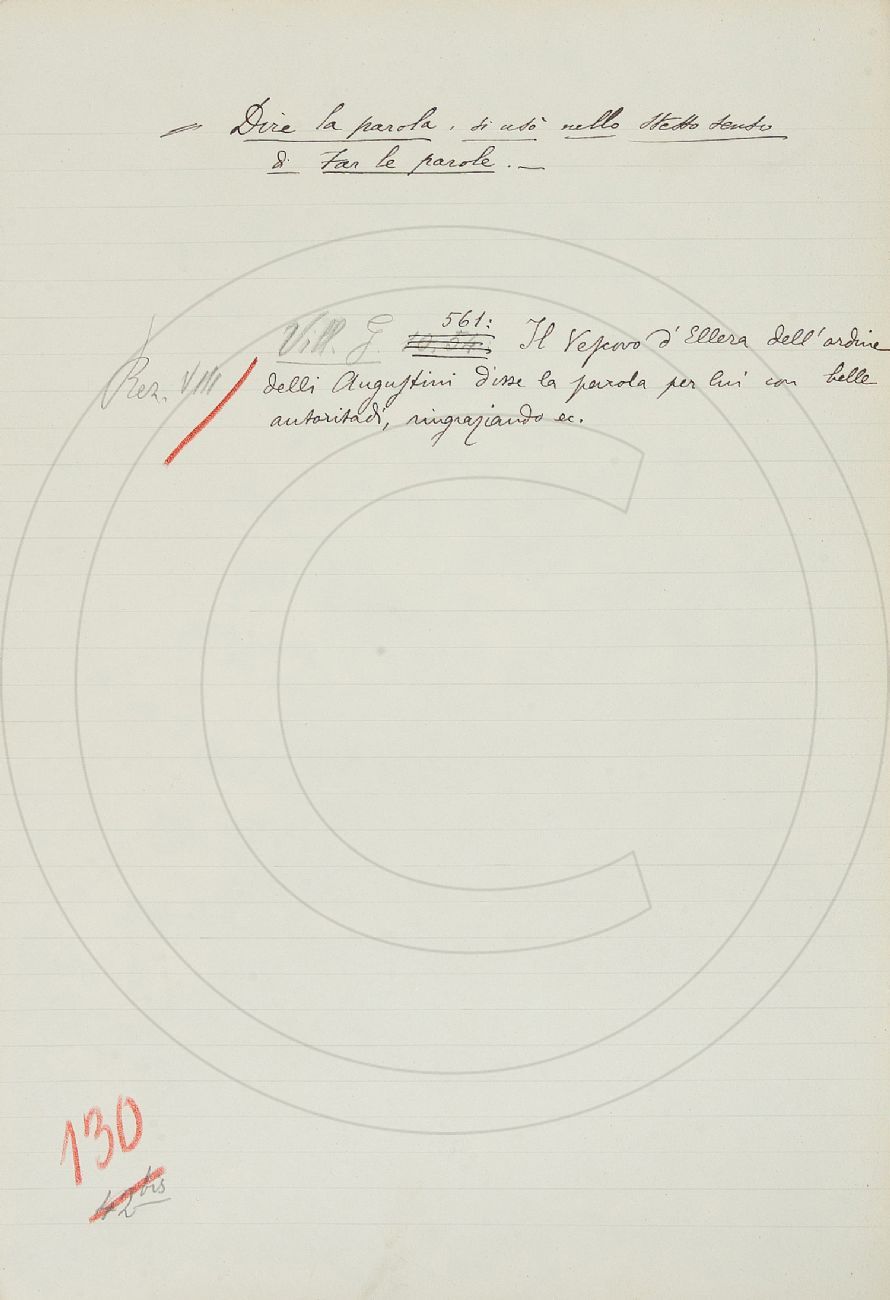 = Dire la parola, si usò nello stesso senso
di Far le parole. —
561:
Vill. G. 10. 54. Il Vescovo d'Ellera dell'ordine
Rez. VIII delli Augustini disse la parola per lui con belle
autoritadi, ringraziando ec.
130
42 bis